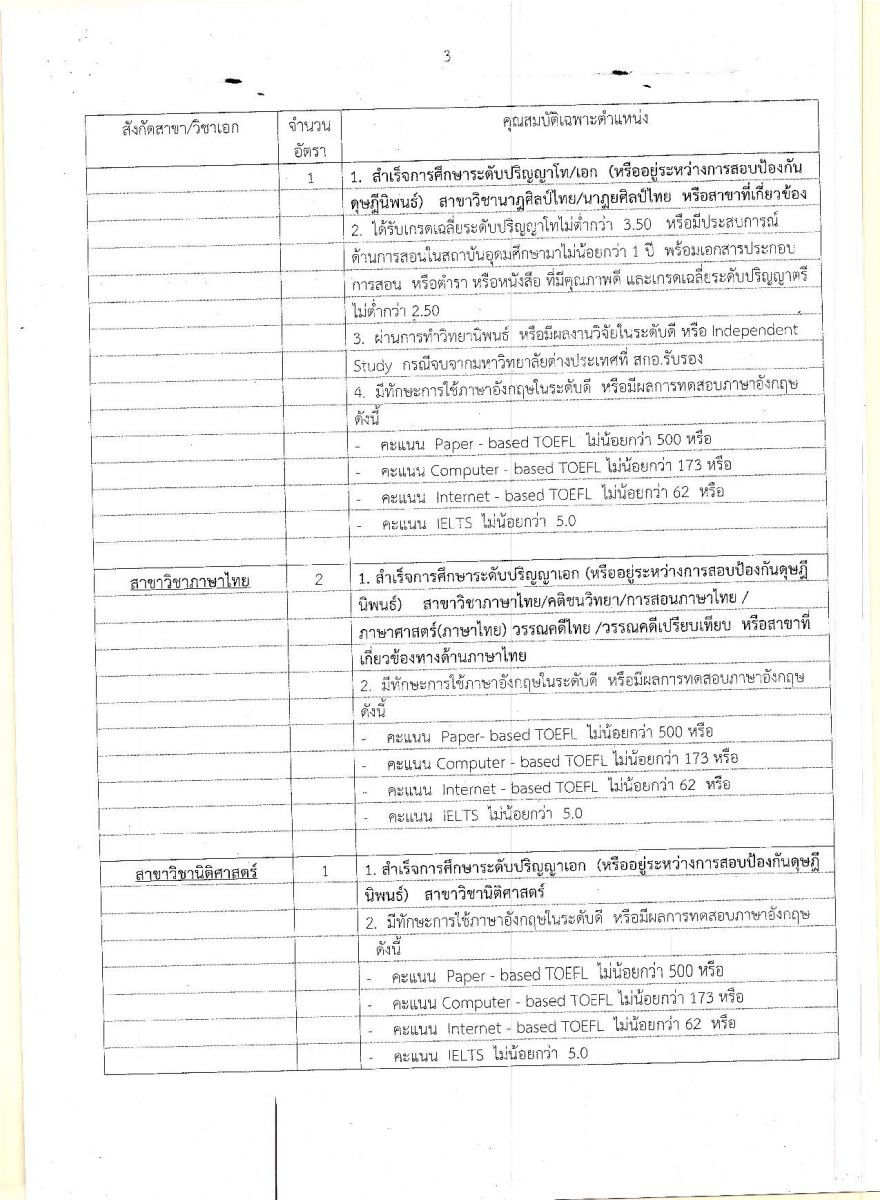 3
สังกัดสาขา/วิชาเอก
จำนวน
อัตรา
คุณสมบัติเฉพาะตำแหน่ง
1
1. สำเร็จการศึกษาระดับปริญญาโท/เอก (หรืออยู่ระหว่างการสอบป้องกัน
ดุษฎีนิพนธ์) สาขาวิชานาฏศิลป์ไทย/นาฏยศิลป์ไทย หรือสาขาที่เกี่ยวข้อง
2. ได้รับเกรดเฉลี่ยระดับปริญญาโทไม่ต่ำกว่า 3.50 หรือมีประสบการณ์
ด้านการสอนในสถาบันอุดมศึกษามาไม่น้อยกว่า 1 ปี พร้อมเอกสารประกอบ
การสอน หรือตำรา หรือหนังสือ ที่มีคุณภาพดี และเกรดเฉลี่ยระดับปริญญาตรี
ไม่ต่ำกว่า 2.50
3. ผ่านการทำวิทยานิพนธ์ หรือมีผลงานวิจัยในระดับดี หรือ Independent
Study กรณีจบจากมหาวิทยาลัยต่างประเทศที่ สกอ.รับรอง
4. มีทักษะการใช้ภาษาอังกฤษในระดับดี หรือมีผลการทดสอบภาษาอังกฤษ
ดังนี้
- คะแนน Paper - based TOEFL ไม่น้อยกว่า 500 หรือ
- คะแนน Computer - based TOEFL ไม่น้อยกว่า 173 หรือ
- คะแนน Internet - based TOEFL ไม่น้อยกว่า 62 หรือ
- คะแนน IELTS ไม่น้อยกว่า 5.0
สาขาวิชาภาษาไทย
2
1. สำเร็จการศึกษาระดับปริญญาเอก (หรืออยู่ระหว่างการสอบป้องกันดุษฎี
นิพนธ์) สาขาวิชาภาษาไทย/คติชนวิทยา/การสอนภาษาไทย /
ภาษาศาสตร์(ภาษาไทย) วรรณคดีไทย /วรรณคดีเปรียบเทียบ หรือสาขาที่
เกี่ยวข้องทางด้านภาษาไทย
2. มีทักษะการใช้ภาษาอังกฤษในระดับดี หรือมีผลการทดสอบภาษาอังกฤษ
ดังนี้
- คะแนน Paper- based TOEFL ไม่น้อยกว่า 500 หรือ
- คะแนน Computer - based TOEFL ไม่น้อยกว่า 173 หรือ
- คะแนน Internet - based TOEFL ไม่น้อยกว่า 62 หรือ
- คะแนน IELTS ไม่น้อยกว่า 5.0
สาขาวิชานิติศาสตร์
1
1. สำเร็จการศึกษาระดับปริญญาเอก (หรืออยู่ระหว่างการสอบป้องกันดุษฎี
นิพนธ์) สาขาวิชานิติศาสตร์
2. มีทักษะการใช้ภาษาอังกฤษในระดับดี หรือมีผลการทดสอบภาษาอังกฤษ
ดังนี้
- คะแนน Paper - based TOEFL ไม่น้อยกว่า 500 หรือ
- คะแนน Computer - based TOEFL ไม่น้อยกว่า 173 หรือ
- คะแนน Internet - based TOEFL ไม่น้อยกว่า 62 หรือ
- คะแนน IELTS ไม่น้อยกว่า 5.0